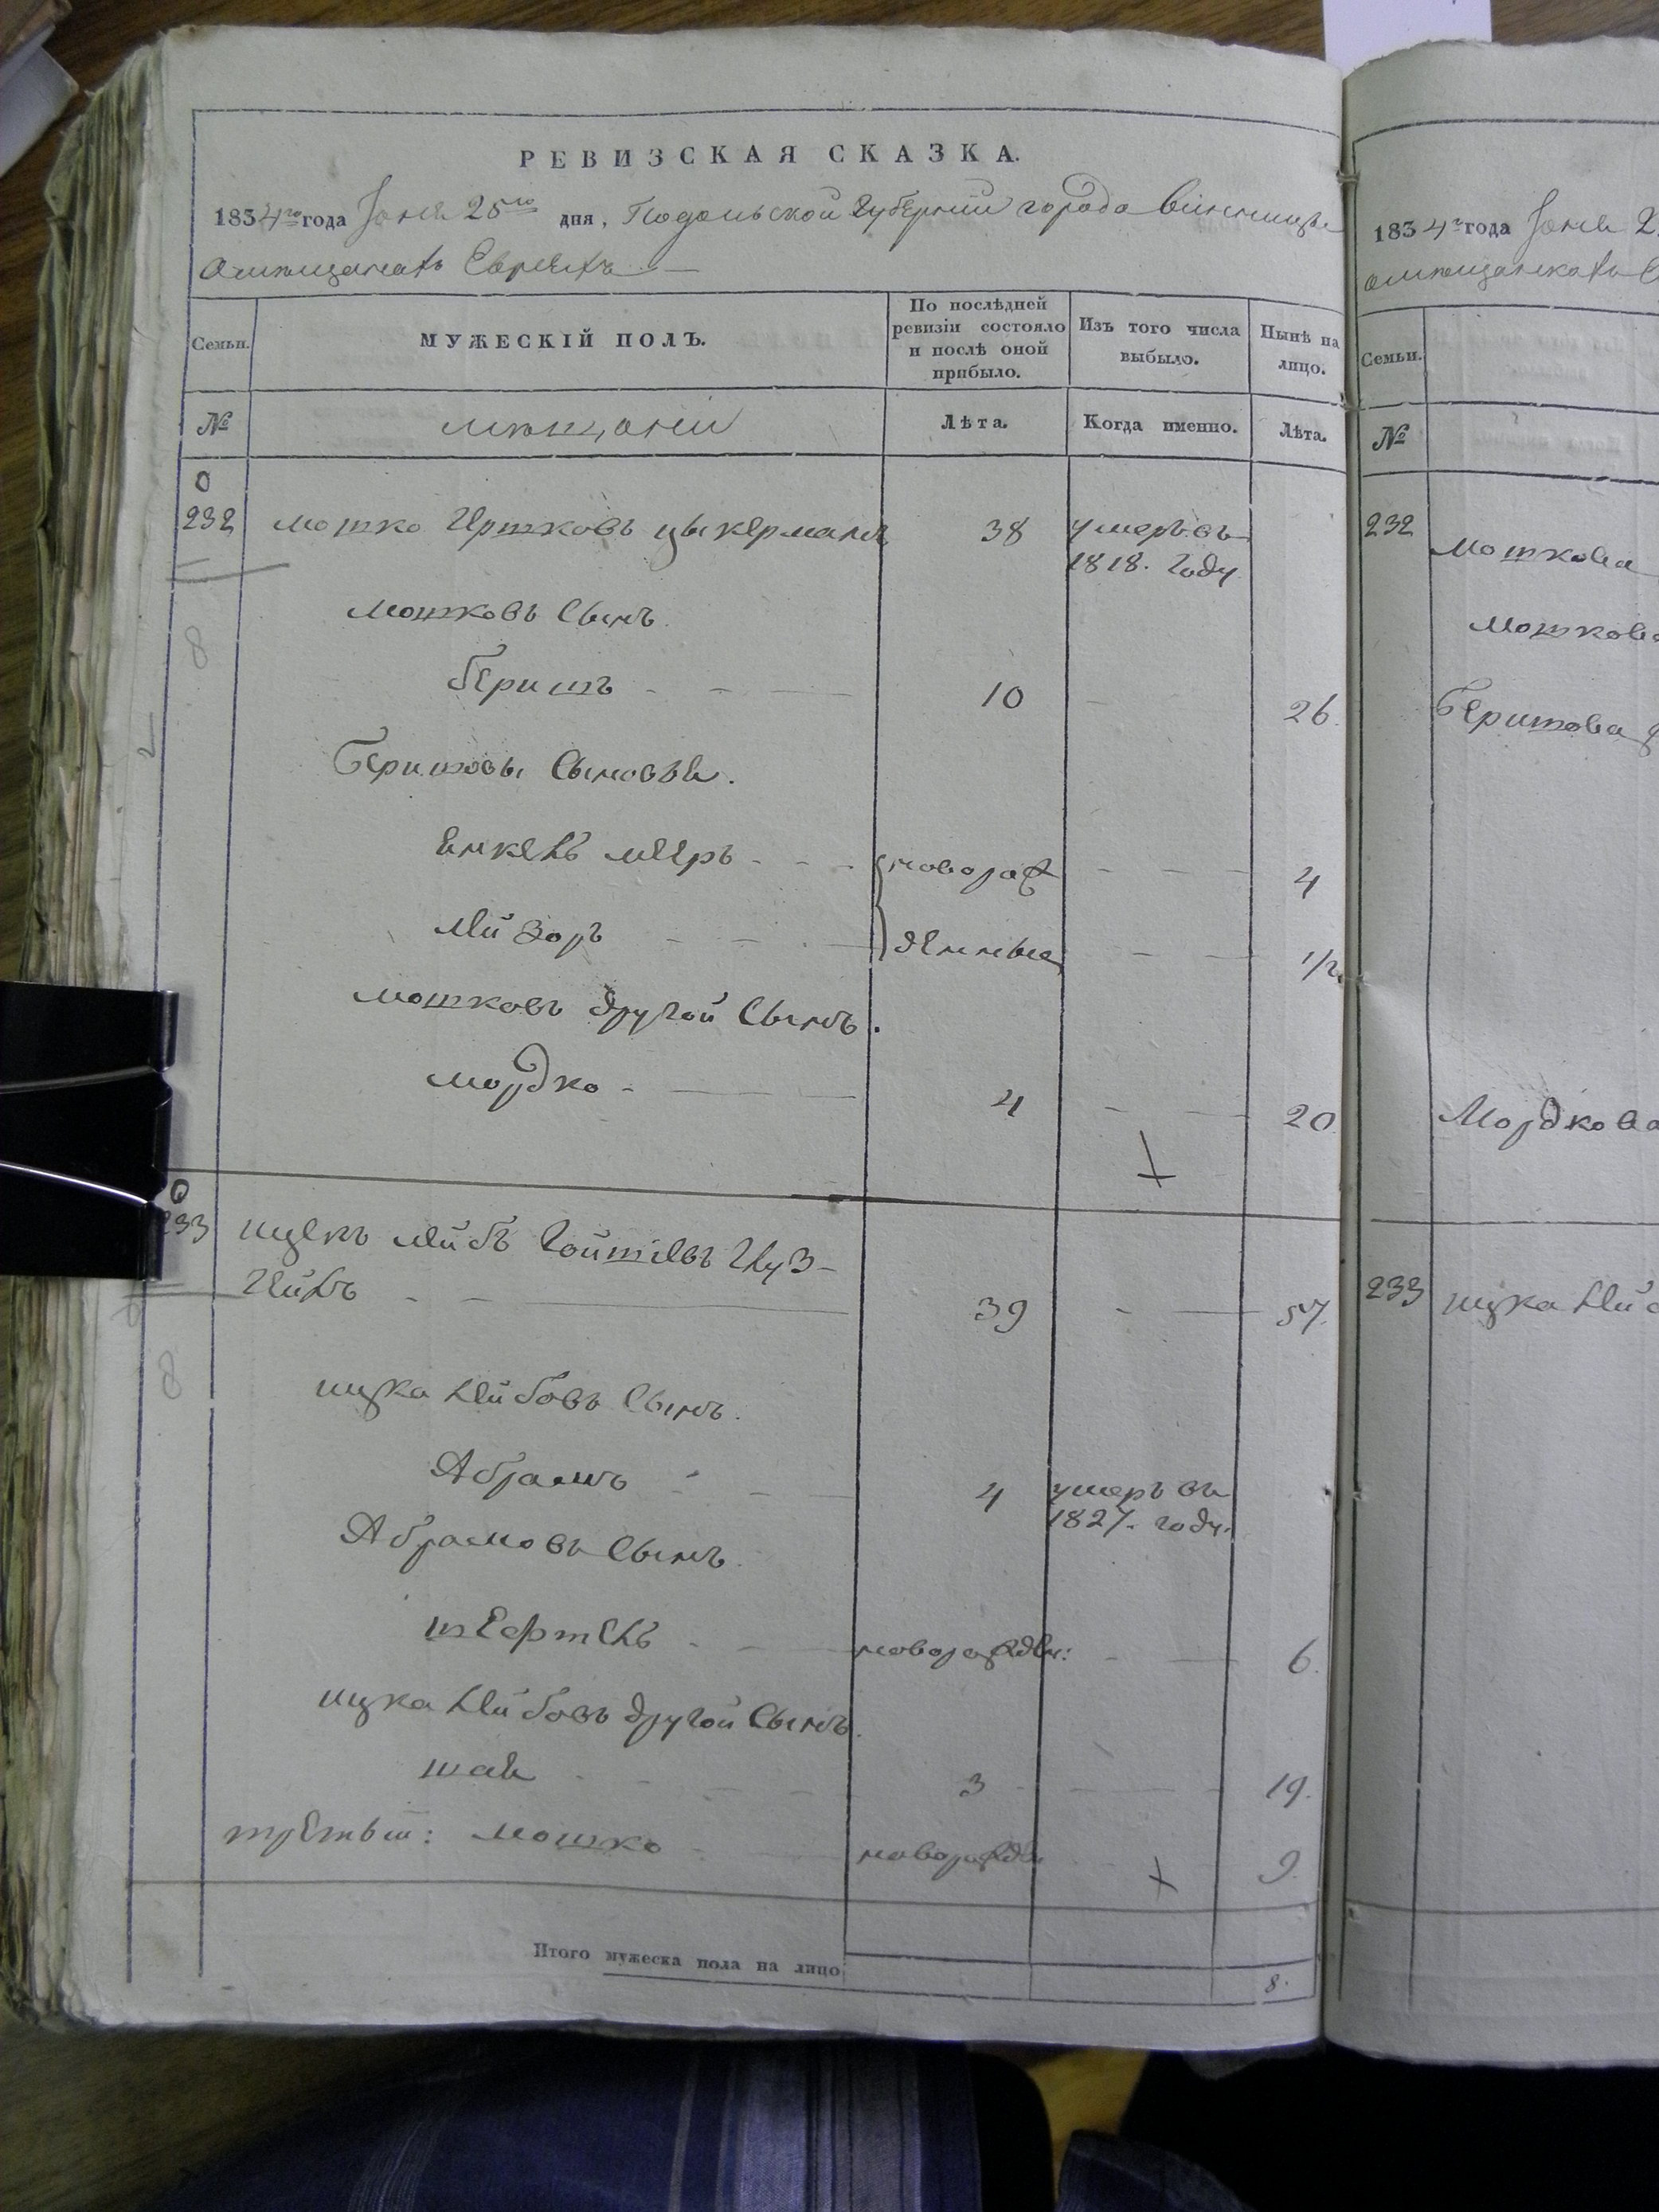 РЕВИЗСКАЯ СКАЗКА.
1834го года Іюня 25го дня, Подольской Губерніи города Винницы
О мещанахъ Евреяхъ
Семьи. МУЖЕСКІЙ ПОЛЪ. По послѣдней ревизіи состояло и послѣ оной прибыло. Изъ того числа выбыло. Нынѣ на лицо.
№ мещане Лѣта. Когда именно. Лѣта.
0
232 мошко Гершковъ цыкерманъ 38 умеръ въ
1818. году
мошковъ Сынъ
8
беришъ 10 26.
Беришовы Сыновья.
Янкель мееръ новорож 4
Лейзоръ денные 1/2
мошковъ другой Сынъ.
мордко 4 20
0
233 ицекъ лейбъ
39 57.
ицка Лейбовъ Сынъ.
8
Абрамъ 4 умеръ въ
1827. году.
Абрамовъ Сынъ
новорожден: 6.
ицка Лейбовъ другой Сынъ.
шая 3 19.
третый: мошко новорожден 9.
Итого мужеска пола на лицо 8.
1834го года Іюня 2
о мещанкахъ
Семьи.
№
232
мошкова
мошкова
Беришова
Мордкова
233 ицка Лей